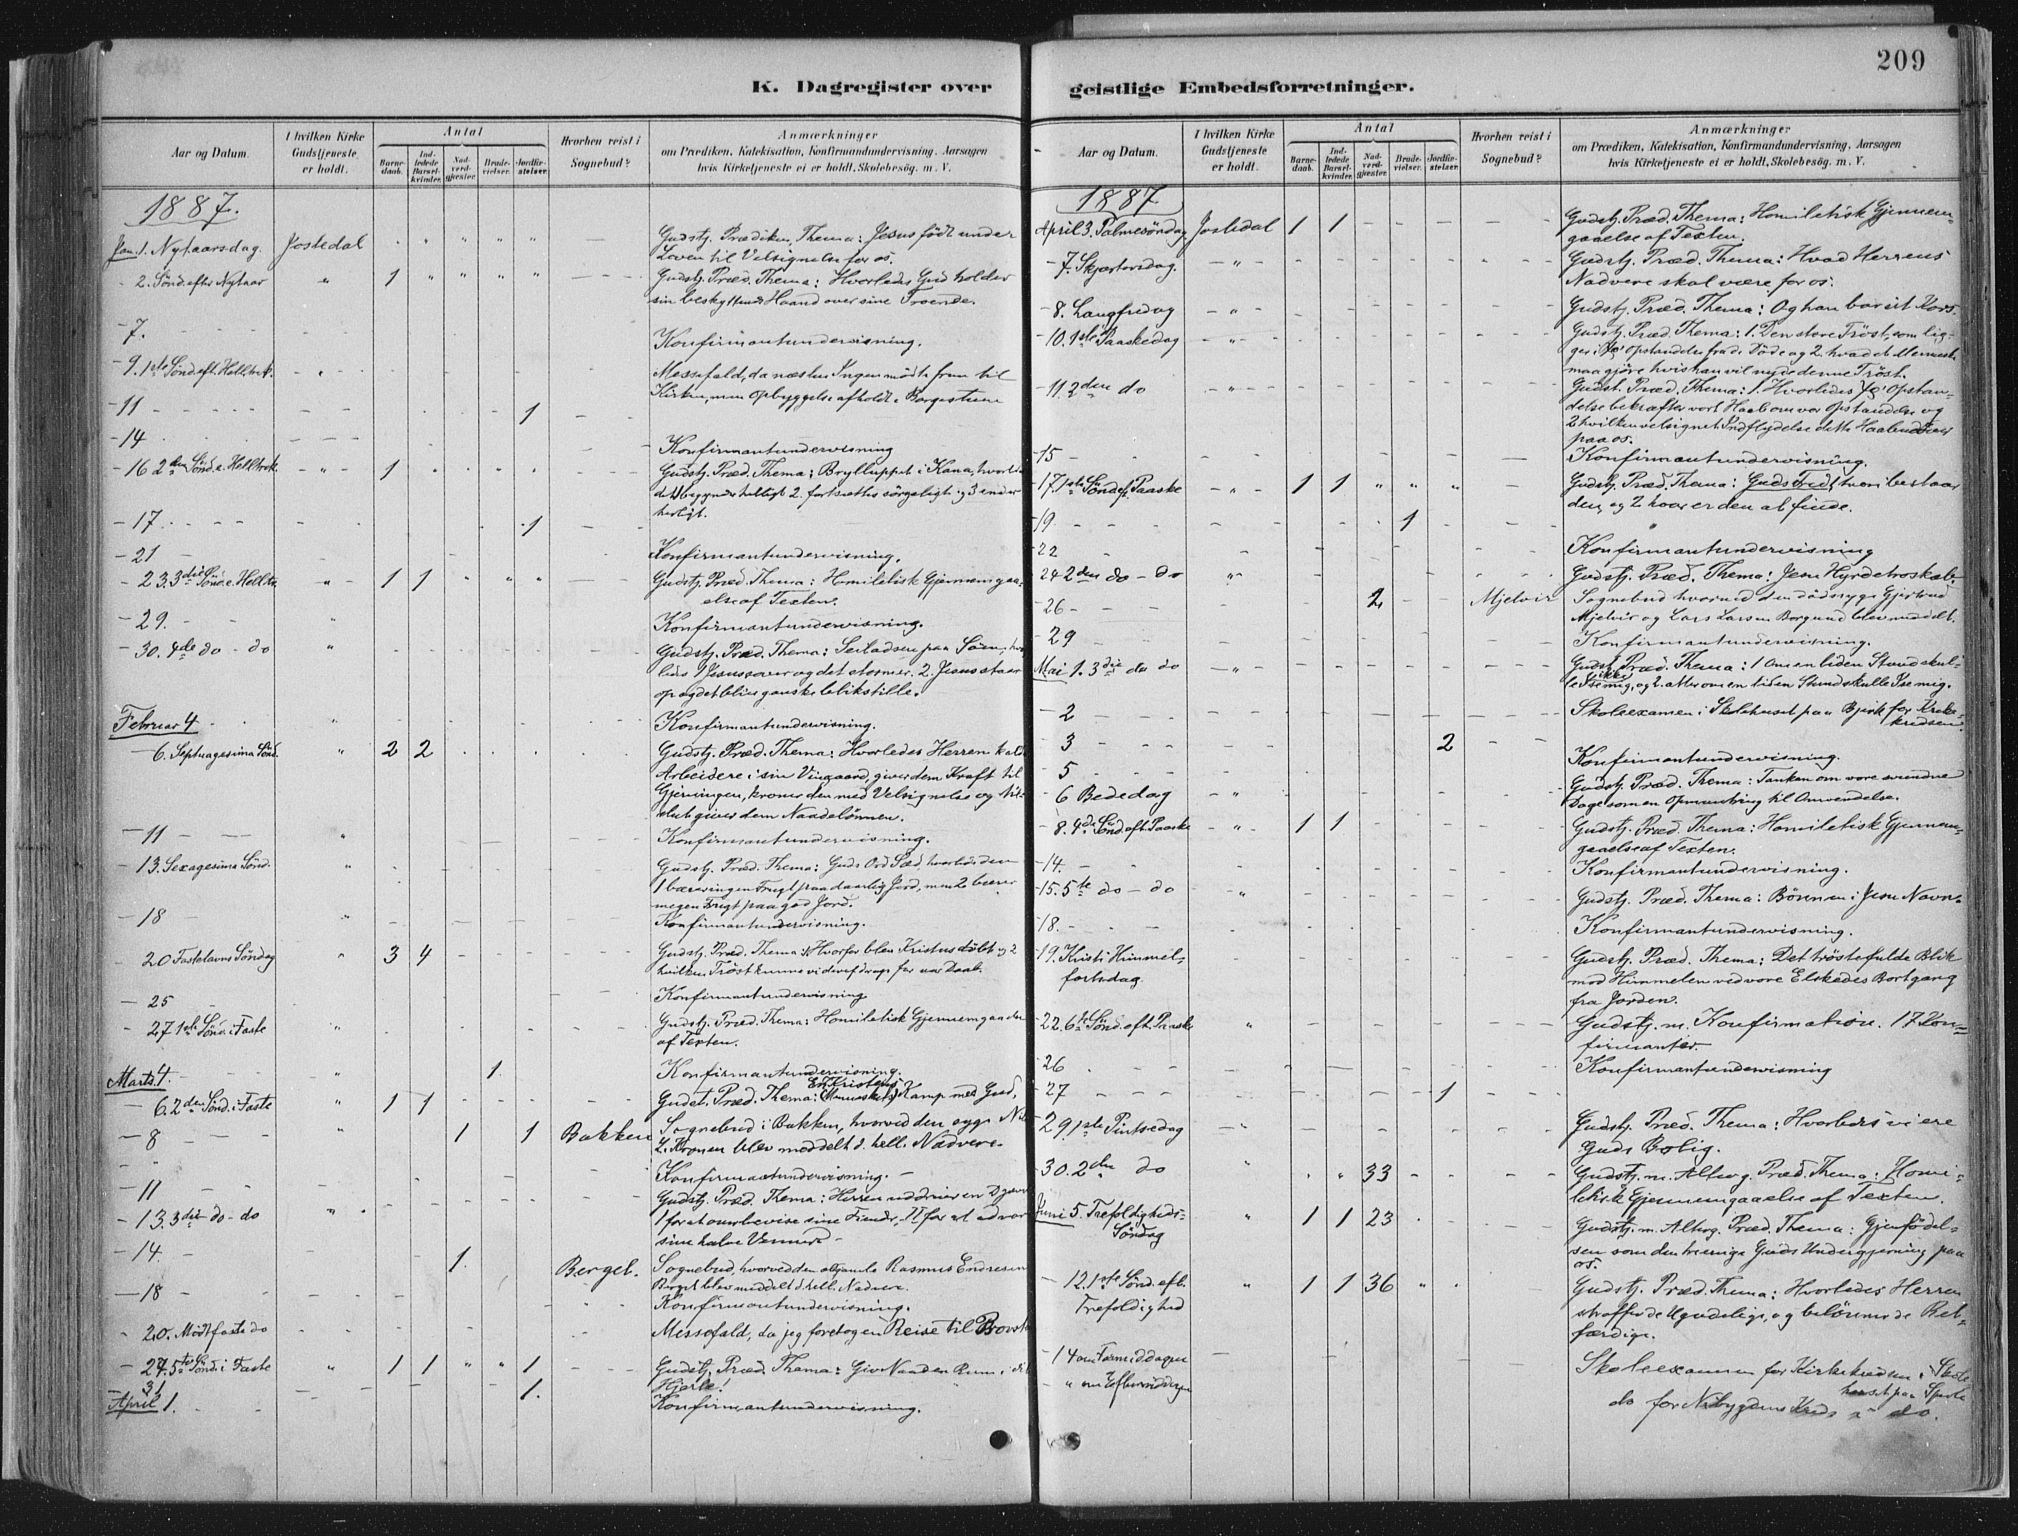 209
K. Dagregister over
geistlige Embedsforretninger.
Aar og Datum.
I hvilken Kirke Gudstjeneste er holdt.
Antal
Barnedaab.
Indledede Barselkvinder.
Nadverdgjæster.
Brudevielser.
Jordfæstelser.
Hvorhen reist i Sognebud?
Anmærkninger
om Prædiken, Katekisation, Konfirmandundervisning, Aarsagen
hvis Kirketjeneste ei er holdt, Skolebesøg. m. V.
1887.
Jan. 1. Nytaarsdag. Jostedal Gudstj. Prædiken, Thema: Jesus født under
Loven til Velsignelse for os.
2. Sønd. efter Nytaar " 1 " " " " Gudstj. Præd. Thema: Hvorledes Gud holder
sin beskyttende Haand over sine Troende.
7. Konfirmantundervisning.
9. 1ste Sønd. eft. Helltrek. Messefald, da næsten Ingen mødte frem til
Kirken, men Opbyggelse afholdt i Borgestuen
11 1
14 Konfirmantundervisning
16 2den Sønd. e. Helltrek. " 1 Gudstj. Præd. Thema: Brylluppet i Kana, hvorledes
det 1 begynder helligt 2. fortsættes sørgeligt og 3 ender
herligt.
17 1
21 Konfirmantundervisning.
23. 3die Sønd. e. Helltr. " 1 1 " " Gudstj. Præd. Thema: Homiletisk Gjennemgaa-
else af Texten.
29. Konfirmantundervisning.
30. 4de do - do " Gudstj. Præd. Thema: Seiladsen paa Søen, hvor
ledes 1 Jesus sover og det stormer, 2. Jesus staar
op og det bliver ganske blikstille.
Februar 4 Konfirmantundervisning.
6. Septuagesima Sønd. " 2 2 Gudstj. Præd. Thema: Hvorledes Herren kald
Arbeidere i sin Vingaard, giver dem Kraft til
Gjerningen, kroner den med Velsignelse og til-
slut giver dem Naadelønnen.
11 " Konfirmantundervisning.
13. Sexagesima Sønd. " Gudstj. Præd. Thema: Guds Ord Sæd, hvorledes den
1 bærer ingen Frugt paa daarlig Jord, men 2 bærer
megen Frugt paa god Jord.
18 " Konfirmantundervisning.
20 Fastelavns Søndag " 3 4 Gudstj. Præd. Thema: 1 Hvorfor blev Kristus døbt og 2
hvilken Trøst kunne vi deraf drage for vor Daab.
25 Konfirmantundervisning
27 1ste Sønd. i Faste " Gudstj. Præd. Thema: Homiletisk Gjennemgaaelse
af Texten.
Marts 4. " 1. Konfirmantundervisning.
6. 2den Sønd. i Faste " 1 1 Gudst. Præd. Thema: En Kristens (Menneskets) Kamp med Gud.
8 " 1 1 Bakken Sognebud i Bakken, hvorved den syge
Kronen blev meddelt d. hell. Nadvere.
11 Konfirmantundervisning.
13. 3die - do - do " Gudstj. Præd. Thema: Herren uddriver en Djævel
1 for at overbevise sine Fiender, II for at advare
sine halve Venner.
14 1. Berget. Sognebud, hvorved den oldgamle Rasmus Endresen
Berget blev meddelt d. hell. Nadvere.
18 Konfirmantundervisning.
20. Midtfaste do Messefald, da jeg foretog en Reise til
27. 5te Sønd. i Faste " 1 1 " " 1 Gudstj. Præd. Thema: Giv Naaden Rum i dit
Hjerte!
31 1.
April 1. Konfirmantundervisning.
Aar og Datum.
I hvilken Kirke Gudstjeneste er holdt.
Antal
Barnedaab.
Indledede Barselkvinder.
Nadverdgjæster.
Brudevielser.
Jordfæstelser.
Hvorhen reist i Sognebud?
Anmærkninger
om Prædiken, Katekisation, Konfirmandundervisning, Aarsagen
hvis Kirketjeneste ei er holdt, Skolebesøg. m. V.
1887
April 3. Palmesøndag Jostedal 1 1 Gudstj. Præd. Thema: Homiletisk Gjennem-
gaaelse af Texten.
7. Skjærtorsdag. " Gudstj. Præd. Thema: Hvad Herrens
Nadvere skal være for os.
8. Langfredag " Gudstj. Præd. Thema: Og han bar sit Kors.
10. 1ste Paaskedag " Gudstj. Præd. Thema: 1. Den store Trøst, som lig-
ger i Opstandelse fra de Døde og 2. hvad et Menneske
maa gjøre hvis han vil nyde denne Trøst.
11. 2den do " Gudst. Præd. Thema: 1. Hvorledes Opstan-
delse bekræfter vort Haab om vor Opstandelse og
2 hvilken velsignet Indflydelse dette Haab
paa os.
15 Konfirmantundervisning.
17. 1ste Sønd. ef. Paaske " 1 1 " " " Gudstj. Præd. Thema: Guds Fred, 1 hvori bestaar
den, og 2 hvor er den at finde.
19 1
22 Konfirmantundervisning
24 2den do - do " Gudstj. Præd. Thema: Jesu Hyrdetroskab.
26 2 Mjelvir Sognebud hvorved den dødssyge Gjertrud
Mjelvir og Lars Larsen Borgund blev meddelt.
29 Konfirmantundervisning.
Mai 1. 3die do do " Gudstj. Præd. Thema: 1 Om en liden Stund skul-
le I ikke se mig, og 2. atter om en liden Stund skulle I se mig.
2 Skoleexamen i Skolehuset paa Bjerk for
kredsen.
3 2
5 Konfirmantundervisning.
6 Bededag " Gudstj. Præd. Thema: Tanken om vore svundne
Dage som en Opmuntring til Omvendelse.
8. 4de Sønd. eft. Paaske " 1 1 Gudstj. Præd. Thema: Homiletisk Gjennem-
gaaelse af Texten.
14. Konfirmantundervisning.
15. 5te do - do " Gudstj. Præd. Thema: Bønnen i Jesu Navn.
18. Konfirmantundervisning.
19. Kristi Himmel-
fartsdag " Gudstj. Præd. Thema: Det trøstefulde Blik
mod Himmelen ved vore Elskedes Bortgang
fra Jorden.
22. 6te Sønd. eft. Paaske " Gudstj. m. Konfirmation. 17 Kon-
firmanter.
26 Konfirmantundervisning
27 1
29 1ste Pintsedag " Gudstj. Præd. Thema: Hvorledes vi ere
Guds Bolig.
30. 2den do " " 33 Gudstj. m. Alterg. Præd. Thema: Homi-
letisk Gjennemgaaelse af Texten.
Juni 5. Trefoldigheds-
Søndag " 1 1 23 Gudstj. m. Alterg. Præd. Thema: Gjenfødel-
sen som den treenige Guds Undergjerning paa
os.
12. 1ste Sønd. eft.
Trefoldighed " 1 1 36 " Gudstj. Præd. Thema: Hvorledes Herren
straffer de Ugudelige, og belønner de Ret-
færdige.
14 om Formiddagen Skoleexamen for Kirkekredsen i Skole
huset paa
" om Eftermiddagen do for Nebygdens Kreds " do.